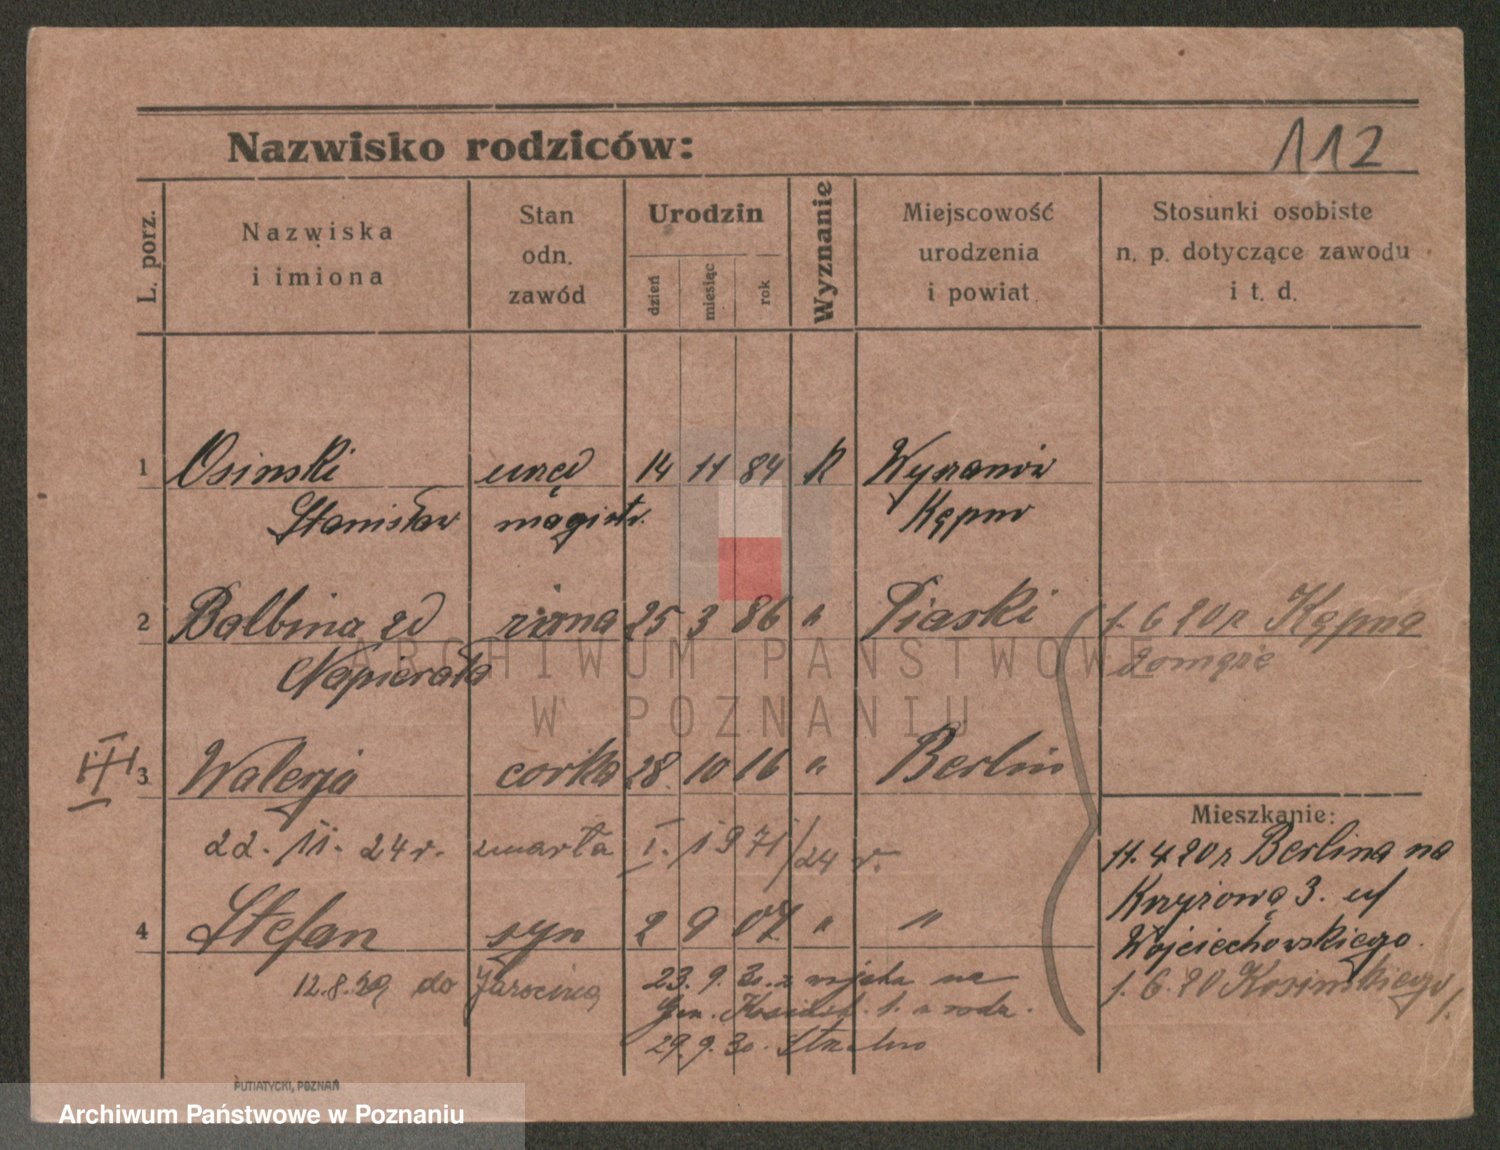 Nazwisko rodziców:
112
L. porz.
Nazwiska
i imiona
Stan
odn.
zawód
Urodzin
dzień
miesiąc
rok
Wyznanie
Miejscowość
urodzenia
i powiat
Stosunki osobiste
n. p. dotyczące zawodu
i t. d.
1 Osinski urzęd 14 11 84 R
Stanisław magistr. Kępno
2 Balbina zd żona 25 3 86 " Piaski 1. 6 20 r Kępna
Napierała
3 Walerja córka 28. 10 16 " Berlin
Mieszkanie:
22. 11. 24 r. zmarła I. 1971/24 r. 11. 4 20 r Berlina na
Krzyżową 3.
4 Stefan syn 2 9 07 " " Wojciechowskiego.
12.8.29 do Jarocina 23. 9. 30. z na 1. 6. 20
29. 9. 30.
PUTIATYCKI, POZNAŃ
ARCHIWUM PAŃSTWOWE
W POZNANIU
Archiwum Państwowe w Poznaniu